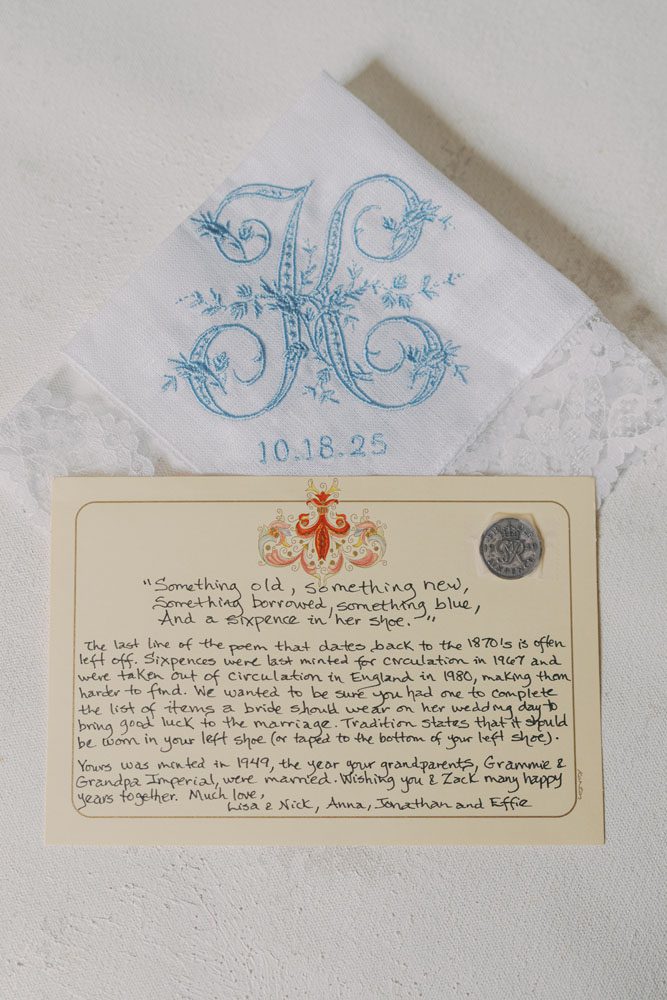 K
10.18.25
"Something old, something new,
Something borrowed, something blue,
And a sixpence in her shoe."
The last line of the poem that dates back to the 1870's is often
left off. Sixpences were last minted for circulation in 1967 and
were taken out of circulation in England in 1980, making them
harder to find. We wanted to be sure you had one to complete
the list of items a bride should wear on her wedding day to
bring good luck to the marriage. Tradition states that it should
be worn in your left shoe (or taped to the bottom of your left shoe).
Yours was minted in 1949, the year your grandparents, Grammie &
Grandpa Imperial, were married. Wishing you & Zack many happy
years together. Much love,
Lisa & Nick, Anna, Jonathan and Effie